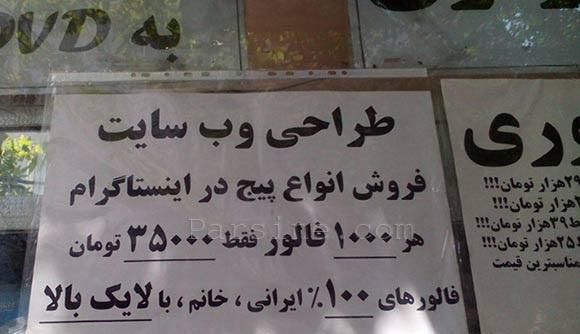 به DVD
طراحی وب سایت
فروش انواع پیج در اینستاگرام
هر ۱۰۰۰ فالور فقط ۳۵۰۰۰ تومان
فالورهای ۱۰۰٪ ایرانی ، خانم ، با لایک بالا
وری
۲۹هزار تومان!!!
هزار تومان!!!
۳۹هزار تومان!!!
۲۵هزار تومان!!!
مناسبترین قیمت
Parsine.com